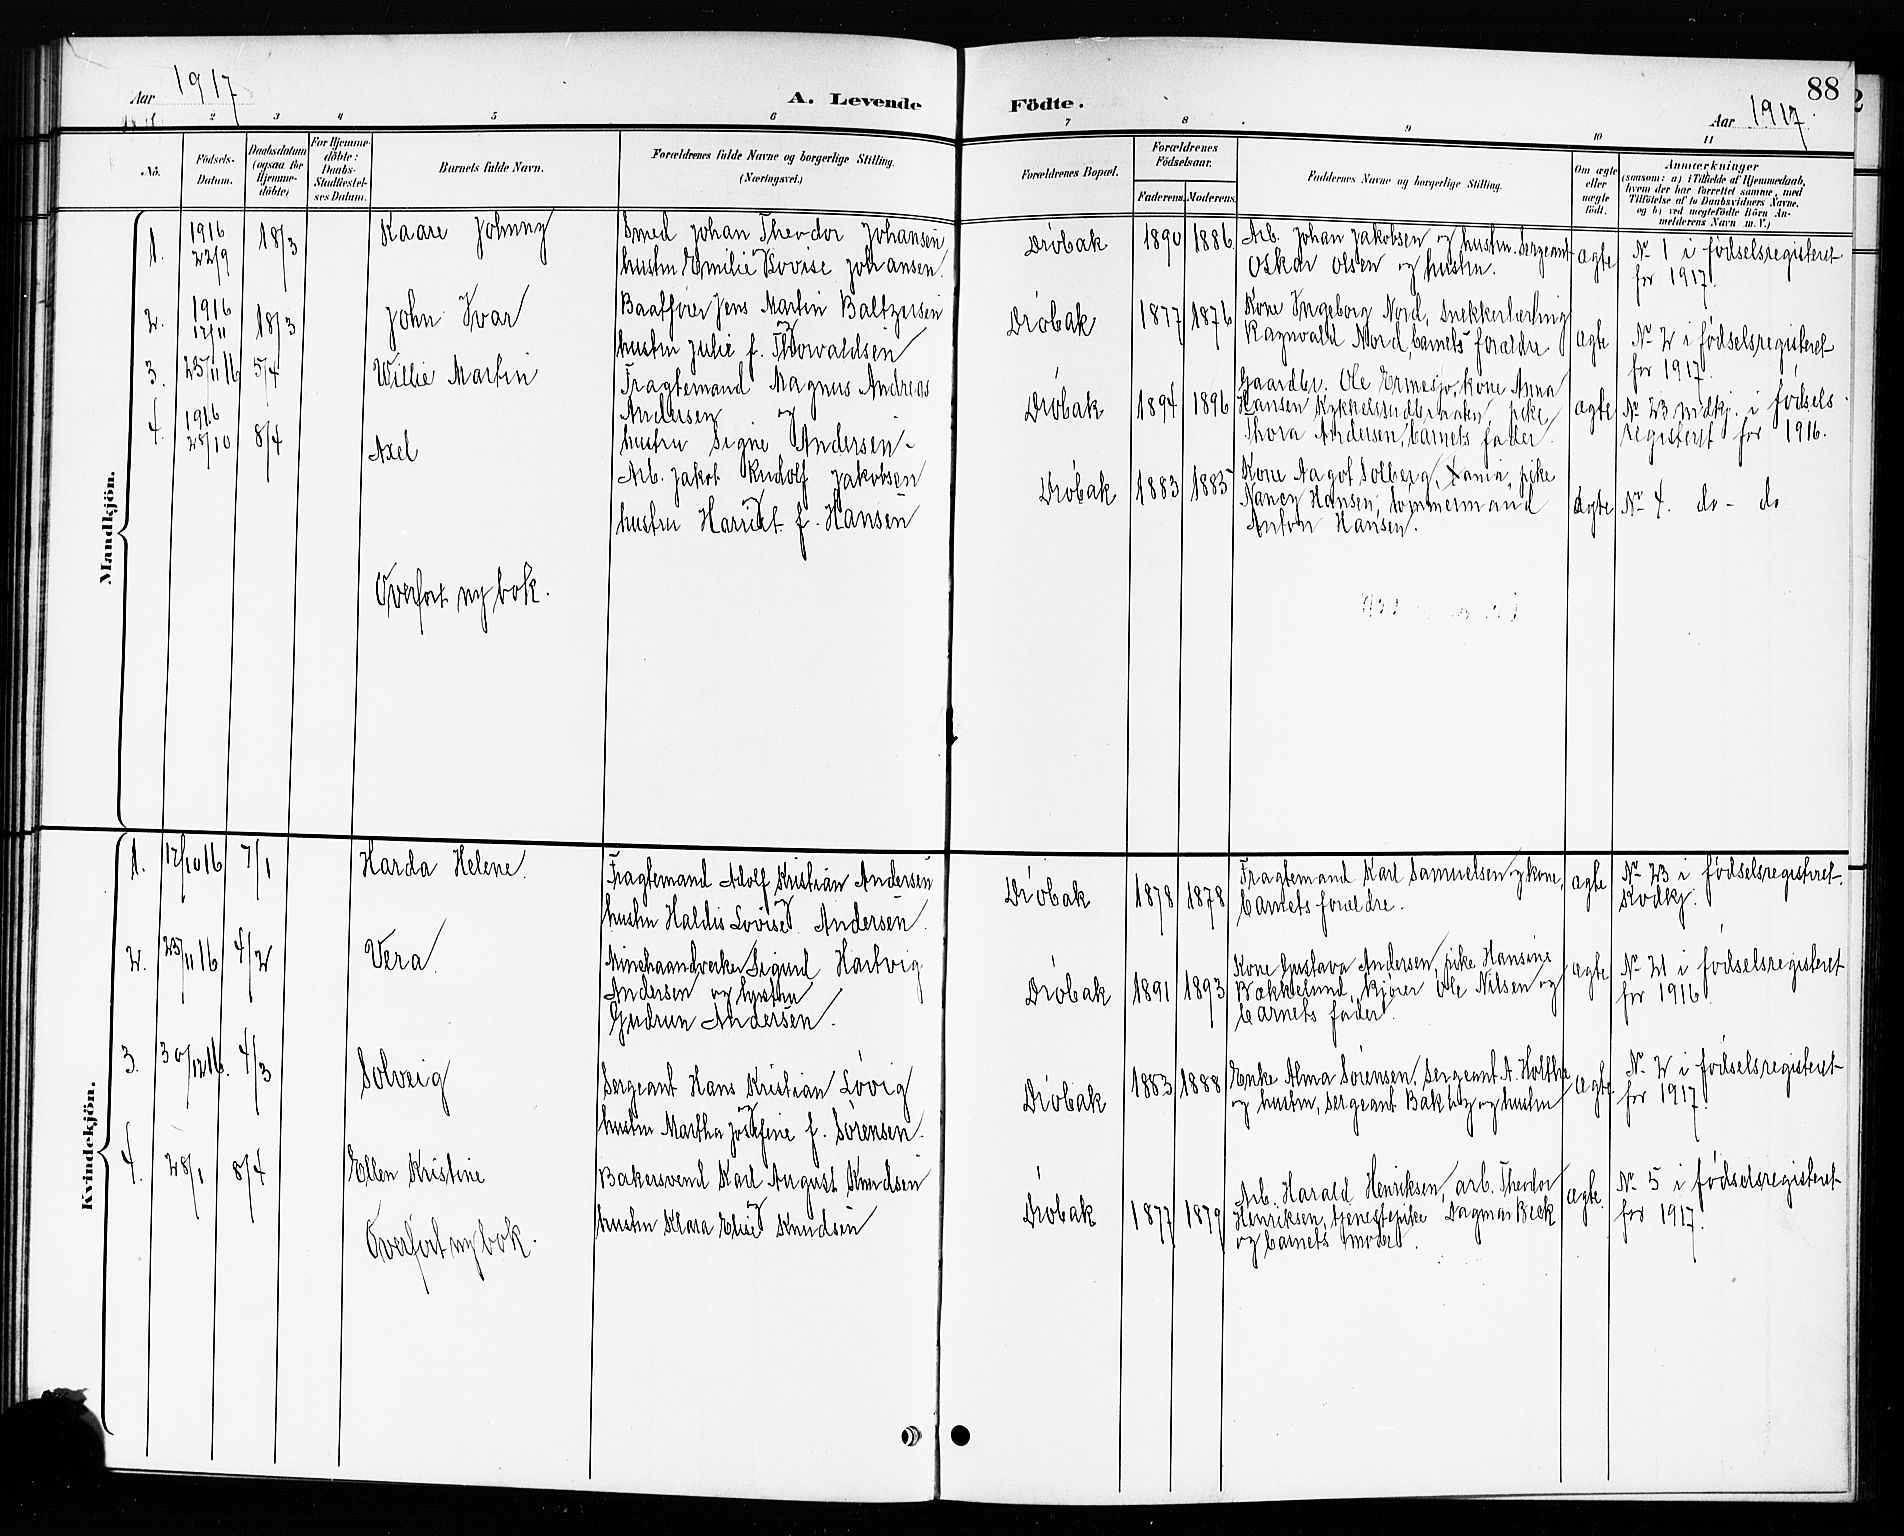 Aar 1917
A. Levende Födte.
88
Aar 1917.
2 3 4 5 6 7 8 9 10 11
No.
Födsels-Datum.
Daabsdatum (ogsaa for Hjemme-döbte)
For Hjemme-döbte: Daabs-Stadfæstel-ses Datum.
Barnets fulde Navn.
Forældrenes fulde Navne og borgerlige Stilling. (Næringsvei.)
Forældrenes Bopæl.
Forældrenes Födselsaar.
Faderens. Moderens.
Faddernes Navne og borgerlige Stilling.
Om ægte eller uægte födt.
Anmærkninger
(saasom: a) i Tilfælde af Hjemmedaab,
hvem der har forrettet samme, med
Tilföielse af to Daabsvidners Navne.
og b) ved uægtefödte Börn An-
melderens Navn m. V.)
Mandkjön.
1. 1916 22/9 18/3 Kaare Johnny
Smed Johan Theodor Johansen
og hustru Emilie Lovise Johansen.
Dröbak 1890 1886
Arb. Johan Jakobsen og hustru. Sergeant
Oskar Olsen og hustru.
ægte
Nr 1 i fødselsregisteret
for 1917.
2. 1916 12/11 18/3 John Ivar
Baatfører Jens Martin Baltzersen
og hustru Julie f. Thorvaldsen
Dröbak 1877 1876
Kone Ingeborg Nord, Snekkerlærling
Ragnvald Nord, barnets forældre
ægte
Nr 2 i fødselsregisteret
for 1917.
3. 25/11 16 5/4 Willie Martin
Fragtemand Magnus Andreas
Andersen og
hustru Signe Andersen
Dröbak 1894 1896
Gaardbr. Ole Ermesjø, kone Anna
Hansen pike
Thora Andersen, barnets fader.
ægte
Nr 23 mdkj. i fødsels
registeret for 1916.
4. 1916 28/10 8/4 Axel
Arb. Jakob Rudolf Jakobsen
og hustru Harriet f. Hansen
Dröbak 1883 1885
Kone Aagot Solberg, pike
Nancy Hansen, tømmermand
Anton Hansen.
ægte
Nr 4. do - do
Overført ny bok.
Kvindekjön.
1. 12/10 16 7/1 Harda Helene.
Fragtemand Adolf Kristian Andersen
og hustru Haldis Lovise Andersen.
Dröbak 1878 1878
Fragtemand Karl Samuelsen og kone,
barnets forældre.
ægte
Nr 23 i fødselsregisteret.
Kvdkj.
2. 23/11 16 4/2 Vera
Minehaandverker Sigurd Hartvig
Andersen og hustru
Gudrun Andersen.
Dröbak 1891 1893
Kone Gustava Andersen, pike Hansine
Bækkelund, kjører Ole Nilsen og
barnets fader.
ægte
Nr 21 i fødselsregisteret
for 1916.
3. 30/12 16. 4/3 Solveig
Sergeant Hans Kristian Løvig
og hustru Martha Josefine f. Sørensen.
Dröbak 1883 1888
Enke Alma Sørensen, Sergeant A. Holthe
og hustru, Sergeant og hustru
ægte
Nr 2 i fødselsregisteret
for 1917.
4. 28/1 8/4 Ellen Kristine
Bakersvend Karl August Knudsen
og hustru Klara Elise Knudsen
Dröbak 1877 1879
Arb. Harald Henriksen, arb. Theodor
Henriksen, tjenestepike Dagmar Beck
og barnets moder.
ægte.
Nr 5 i fødselsregisteret
for 1917.
Overført ny bok.